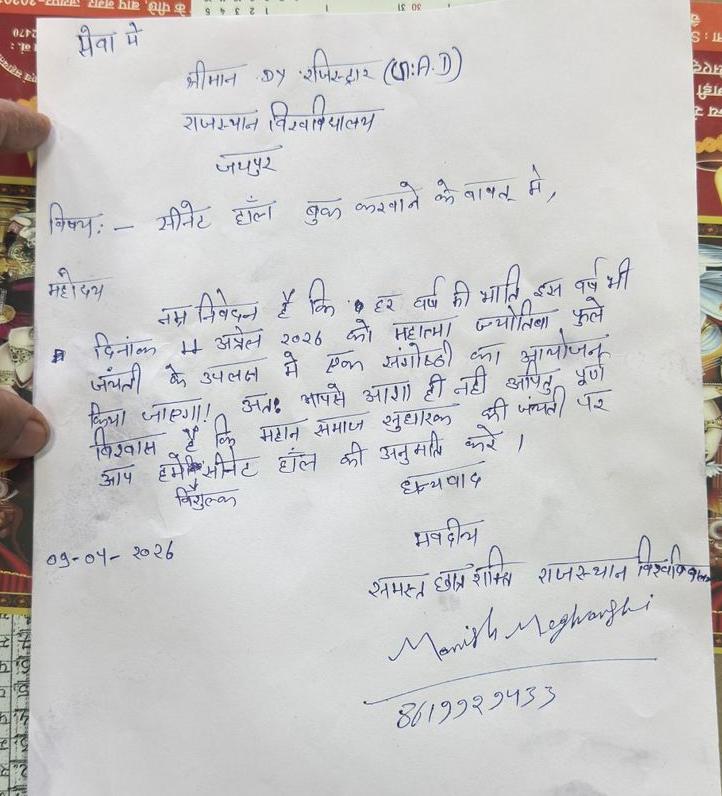 सेवा मे
श्रीमान Dy रजिस्ट्रार (G.A.D)
राजस्थान विश्वविद्यालय
जयपुर
विषय:- सीनेट हॉल बुक करवाने के बाबत् मे,
महोदय
नम्र निवेदन है कि हर वर्ष की भाति इस वर्ष भी
दिनांक 11 अप्रेल 2026 को महात्मा ज्योतिबा फुले
जंयती के उपलक्ष मे एक संगोष्ठी का आयोजन
किया जाएगा! अतः आपसे आशा ही नही अपितु पूर्ण
विश्वास है कि महान समाज सुधारक की जंयती पर
आप हमे सीनेट हॉल की अनुमति करे।
निशुल्क
धन्यवाद
भवदीय
09-04-2026
समस्त छात्र शक्ति राजस्थान विश्वविद्यालय
Manish Meghwanshi